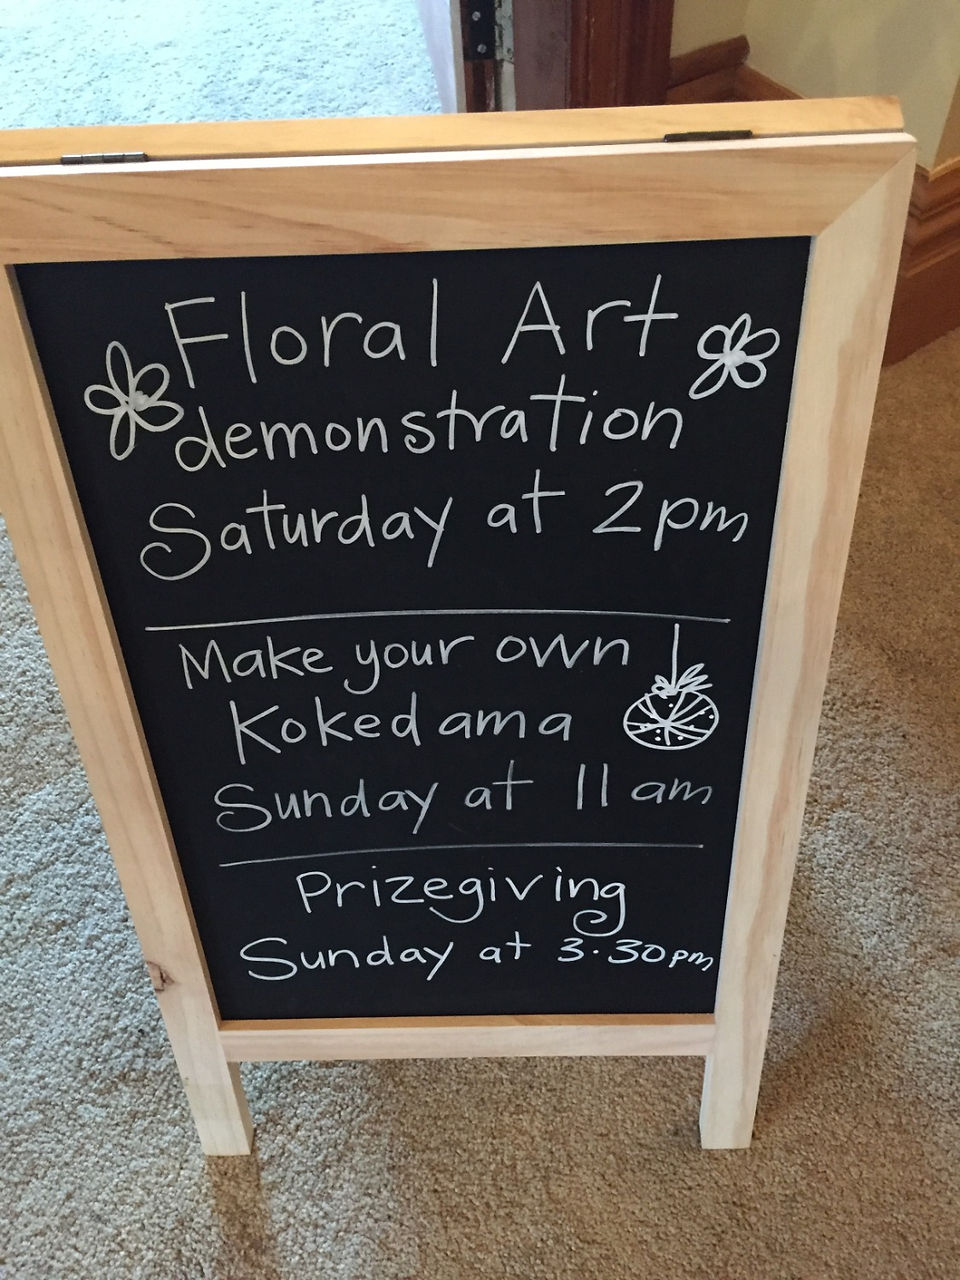 Floral Art
demonstration
Saturday at 2pm
Make your own
Kokedama
Sunday at 11am
Prizegiving
Sunday at 3.30pm